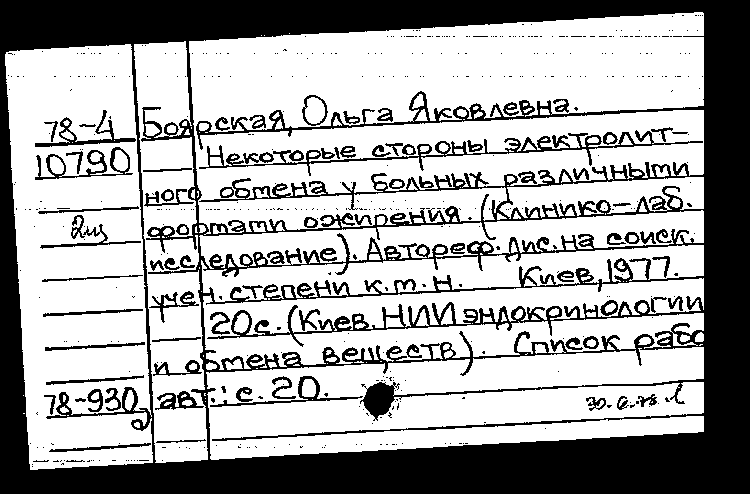 78-4 Боярская, Ольга Яковлевна.
10790 Некоторые стороны электролит-
ного обмена у больных различными
2 формами ожирения. (Клинико-лаб.
исследование). Автореф. дис. на соиск.
учен. степени к.м.н. Киев, 1977.
20с. (Киев. НИИ эндокринологии
и обмена веществ). Список рабо
78-930 авт.: с. 20.